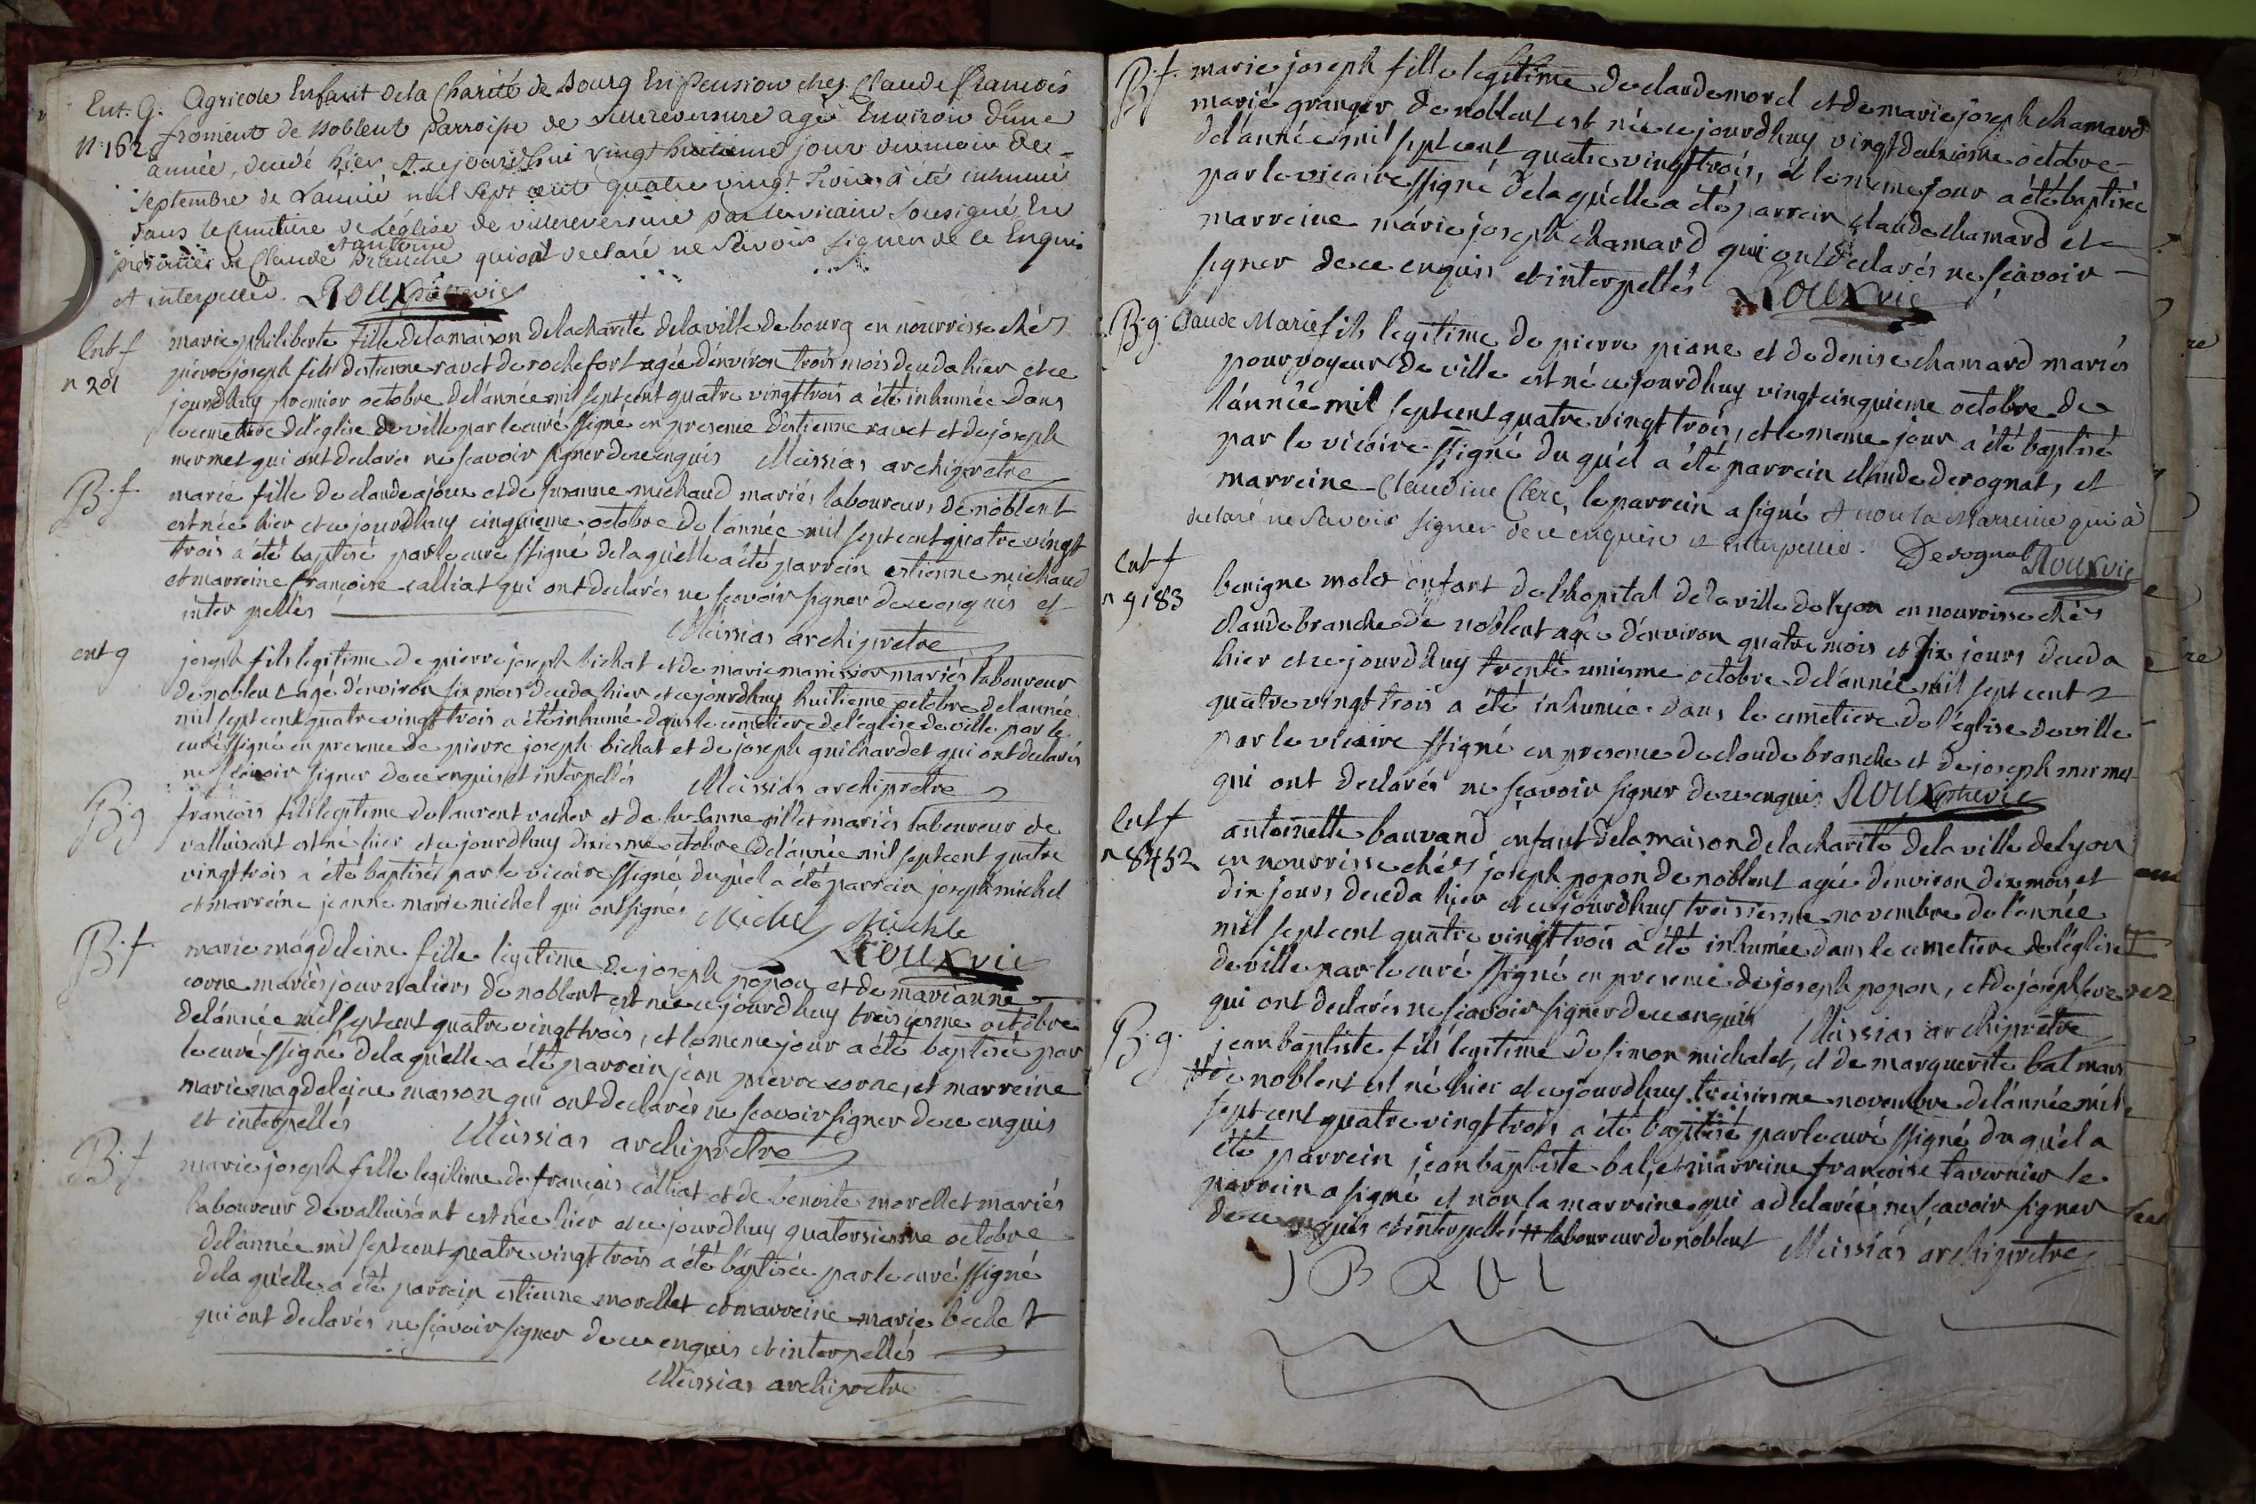 Ent. G. agricole Enfant dela Charité de Bourg En pension chez Claude François
n 162 froment de Noblent parroisse de villereversure agé Environ d'une
année, decedé hier et ce jourd'hui vingt huitieme jour du mois de
Septembre de L'année mil Sept cent quatre vingt trois a été inhumé
dans le cimetiere de L'église de villereversure par le vicaire sousigné En
présence de Claude antoine Branche qui ont declaré ne Savoir signer de ce Enquis
et interpellés. ROUX vic
Ent f marie philiberte fille dela maison dela charité dela ville de bourg en nourrisse chés
n 201 pierre joseph fils d'estienne ravet de rochefort agée d'environ trois mois deceda hier et ce
jourdhuy premier octobre de l'année mil sept cent quatre vingt trois a été inhumée dans
le cimetiere de l'eglise de ville par le curé ssigné en presence d'estienne ravet et de joseph
mermet qui ont declarés ne scavoir signer de ce enquis Messias archipretre
B. f. marie fille de claude ajoux et de susanne michaud mariés laboureurs de noblent
est née hier et ce jourdhuy cinquieme octobre de l'année mil sept cent quatre vingt
trois a été baptisé par le curé ssigné dela qu'elle a été parrein estienne michaud
et marreine françoise calliat qui ont declarés ne scavoir signer de ce enquis et
interpellés
Messias archipretre
ent g joseph fils legitime de pierre joseph bichat et de marie manissier mariés laboureur
de noblent agé d'environ six mois deceda hier et ce jourdhuy huitieme octobre de l'année
mil sept cent quatre vingt trois a été inhumé dans le cimetiere de l'église de ville par le
curé ssigné en presence de pierre joseph bichat et de joseph guichardet qui ont declarés
ne scavoir signer de ce enquis et interpellés Messias archipretre
B. g françois fils legitime de laurent vacher et de susanne sillet mariés laboureur de
valluisant est né hier et ce jourdhuy dixiesme octobre de l'année mil sept cent quatre
vingt trois a été baptisé par le vicaire ssigné du quel a été parrein joseph michel
et marreine jeanne marie michel qui ont signés Michel Michle
ROUX vic
B. f. marie magdeleine fille legitime de joseph popon et de marianne
corne mariés journaliers de noblent est née ce jourdhuy treisiesme octobre
de l'année mil sept cent quatre vingt trois, et le meme jour a été baptisée par
le curé ssigné dela qu'elle a été parrein jean pierre corne, et marreine
marie magdeleine masson qui ont declarés ne scavoir signer de ce enquis
et interpellés Messias archipretre
B. f marie joseph fille legitime de françois calliat et de benoite morellet mariés
laboureur de valluisant est née hier et ce jourdhuy quatorsiesme octobre
de l'année mil sept cent quatre vingt trois a été baptisée par le curé ssigné
dela qu'elle a été parrein estienne morellet et marreine marie bechet
qui ont declarés ne scavoir signer de ce enquis et interpellés
Messias archipretre
B. f. marie joseph fille legitime de claude morel et de marie joseph chamard
mariés granger de noblent est née ce jourdhuy vingt deuxiesme octobre
de l'année mil sept cent quatre vingt trois, et le meme jour a été baptisée
par le vicaire ssigné dela qu'elle a été parrein claude chamard et
marreine marie joseph chamard qui ont declarés ne scavoir
signer de ce enquis et interpellés ROUX vic
B. g. Claude Marie fils legitime de pierre piane et de denise chamard mariés
pourvoyeur de ville est né ce jourdhuy vingt cinquieme octobre de
l'année mil sept cent quatre vingt trois, et le meme jour a été baptisé
par le vicaire ssigné du qu'el a été parrein claude derognat, et
marreine Claudine Clerc, le parrein a signé et non la Marreine qui a
declaré ne Savoir signer de ce enquise et interpellée. Derognat ROUX vic
Ent f benigne molet enfant de l'hopital dela ville de lyon en nourrisse chés
n 9183 claude branche de noblent agée d'environ quatre mois et six jours deceda
hier et ce jourdhuy trente uniesme octobre de l'année mil sept cent
quatre vingt trois a été inhumée dans le cimetiere de l'église de ville
par le vicaire ssigné en presence de claude branche et de joseph mermet
qui ont declarés ne scavoir signer de ce enquis ROUX vic
Ent f antoinette bauvand enfant dela maison dela charité dela ville de lyon
n 8452 en nourrisse chés joseph popon de noblent agée d'environ dix mois et
dix jours deceda hier et ce jourdhuy troisiesme novembre de l'année
mil sept cent quatre vingt trois a été inhumée dans le cimetiere de l'église
de ville par le curé ssigné en presence de joseph popon, et de joseph
qui ont declarés ne scavoir signer de ce enquis Messias archipretre
B. g. jean baptiste fils legitime de simon michalet, et de marguerite bal mariés
# de noblent est né hier et ce jourdhuy treisiesme novembre de l'année mil
sept cent quatre vingt trois a été baptisé par le curé ssigné du qu'el a
été parrein jean baptiste bal, et marreine françoise tavernier le
parrein a signé et non la marreine qui a declarée ne scavoir signer
de ce enquis et interpellés # laboureur de noblent Messias archipretre
J B B A L